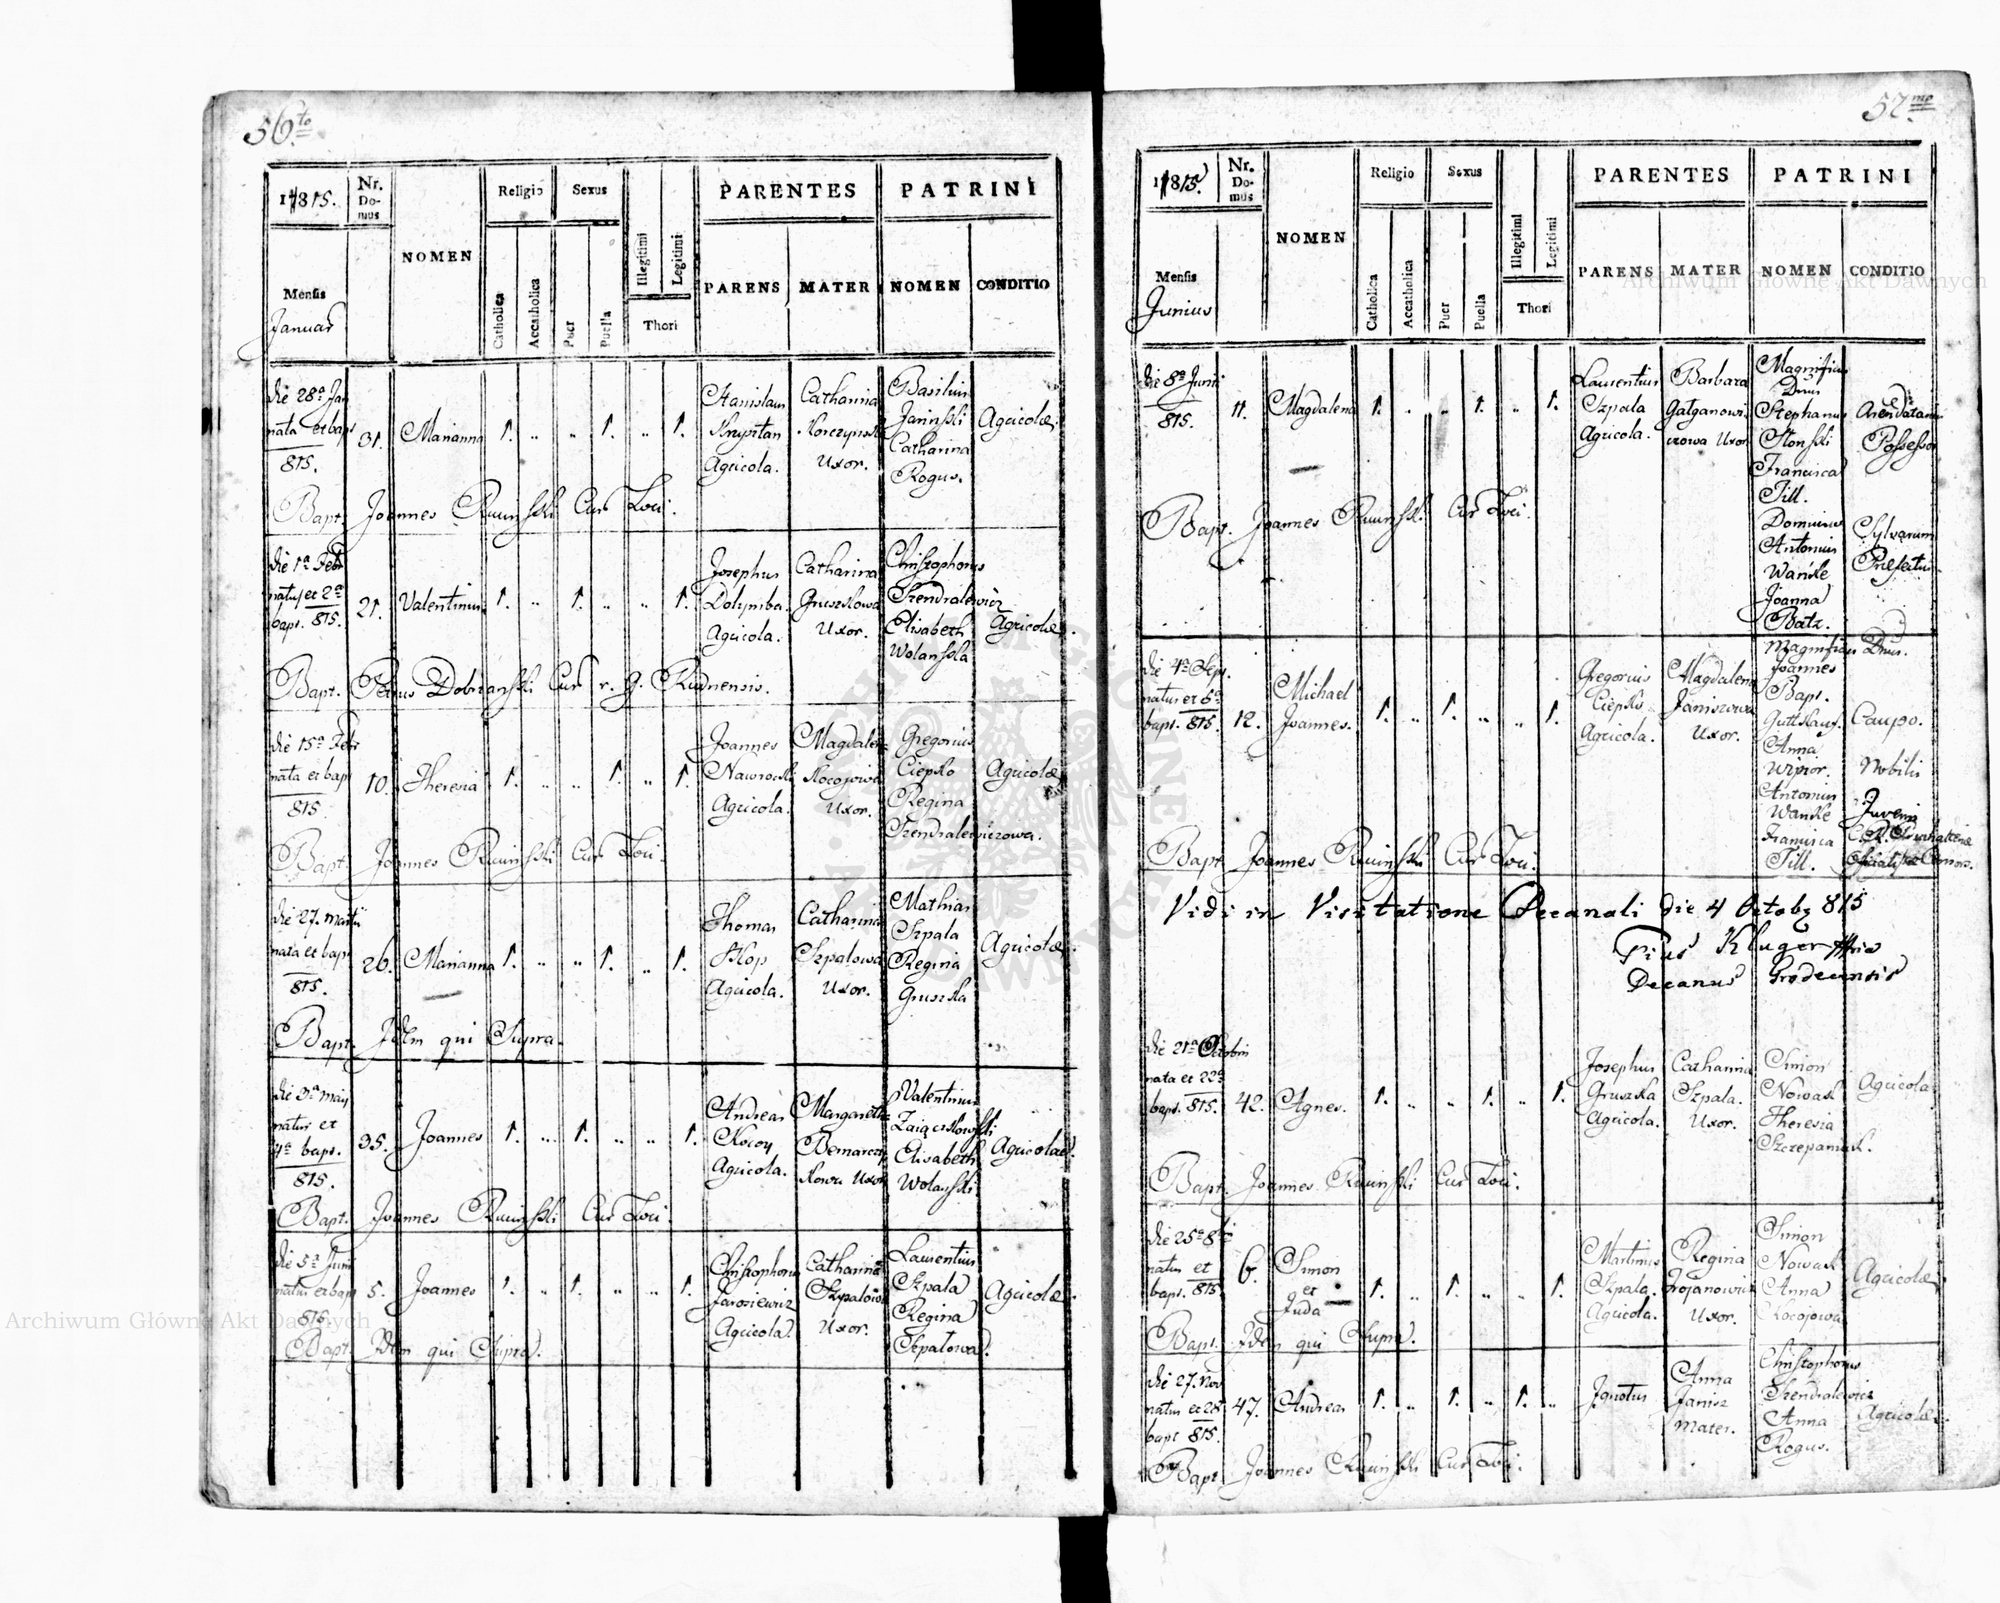 56.to
1815.
Nr. Domus
NOMEN
Religio
Sexus
PARENTES
PATRINI
Mensis
Januar
Catholica
Accatholica
Puer
Puella
Illegitimi
Legitimi
Thori
PARENS
MATER
NOMEN
CONDITIO
die 28a Jan
nata et bapt
815.
31.
Marianna
1. „ „ 1. „ 1.
Stanislaus
Agricola.
Catharina
Uxor.
Basilius
Janinski
Catharina
Rogus.
Agricolae.
Bapt. Joannes Cur Loci.
die 1a Febr
natus et 2a
bapt. 815.
21.
Valentinus
1. „ 1. „ „ 1.
Josephus
Agricola.
Catharina
Gruszkowa
Uxor.
Christophorus
Szendralewicz
Elisabeth
Wolanska
Agricolae.
Bapt. Petrus Dobrzanski Cur r. g. Rudnensis.
die 15a Febr
nata et bapt
815
10.
Theresia
1. „ „ 1. „ 1.
Joannes
Nawrocki
Agricola.
Magdalena
Kocojowa
Uxor.
Gregorius
Ciepko
Regina
Szendralewiczowa.
Agricolae
Bapt. Joannes Cur Loci.
die 27. martii
nata et bapt
815.
26.
Marianna
1. „ „ 1. „ 1.
Thomas
Agricola.
Catharina
Szpalowa
Uxor.
Mathias
Szpala
Regina
Gruszka
Agricolae.
Bapt. Idem qui Supra.
die 3a may
natus et
4a bapt.
815.
35.
Joannes
1. „ 1. „ „ 1.
Andreas
Kocoy
Agricola.
Margaretha
Uxor
Valentinus
Elisabeth
Wolanski
Agricolae.
Bapt. Joannes Cur Loci.
die 5a Junii
natus et bapt
815.
5.
Joannes
1. „ 1. „ „ 1.
Christophorus
Jarosiewicz
Agricola.
Catharina
Szpalowa
Uxor.
Laurentius
Szpala
Regina
Szpalowa.
Agricolae.
Bapt. Idem qui Supra.
57.mo
1815.
Nr. Domus
NOMEN
Religio
Sexus
PARENTES
PATRINI
Mensis
Junius
Catholica
Accatholica
Puer
Puella
Illegitimi
Legitimi
Thori
PARENS
MATER
NOMEN
CONDITIO
die 8a Junii
815.
11.
Magdalena
1. „ „ 1. „ 1.
Laurentius
Szpala
Agricola.
Barbara
Uxor
Magnificus
Dnus
Stephanus
Stonski
Francisca
Till.
Dominus
Antonius
Wanke
Joanna
Batz.
Possessor
Sylvarum
Praefectus
Bapt. Joannes Cur Loci.
die 4a Sept.
natus et 6a
bapt. 815
12.
Michael
Joannes.
1. „ 1. „ „ 1.
Gregorius
Ciepko
Agricola.
Magdalena
Janiszowa
Uxor.
Magnificus Dnus.
Joannes
Bapt.
Anna
Wipior.
Antonius
Wanke
Francisca
Till.
Caupo.
Nobilis
Juvenis
Bapt. Joannes Cur Loci.
Vidi in Visitatione Decanali die 4 Octobr 815
Pius Kluger
Decanus Grodecensis
die 21a Octobris
nata et 22a
bapt. 815.
42.
Agnes.
1. „ „ 1. „ 1.
Josephus
Gruszka
Agricola.
Catharina
Szpala.
Uxor.
Simon
Nowak
Theresia
Szczepaniak.
Agricolae
Bapt. Joannes Cur Loci.
die 25a 8bris
natus et
bapt. 815
6.
Simon
et
Juda
1. „ 1. „ „ 1.
Martinus
Szpala.
Agricola.
Regina
Trojanowicz
Uxor.
Simon
Nowak
Anna
Kocojowa
Agricolae.
Bapt. Idem qui Supra.
die 27. Nov
natus et 28
bapt 815.
47.
Andreas
1. „ 1. „ 1. „
Ignotus
Anna
Janisz
Mater.
Christophorus
Szendralewicz
Anna
Rogus.
Agricolae.
Bapt Joannes Cur Loci.
Archiwum Główne Akt Dawnych
Archiwum Główne Akt Dawnych